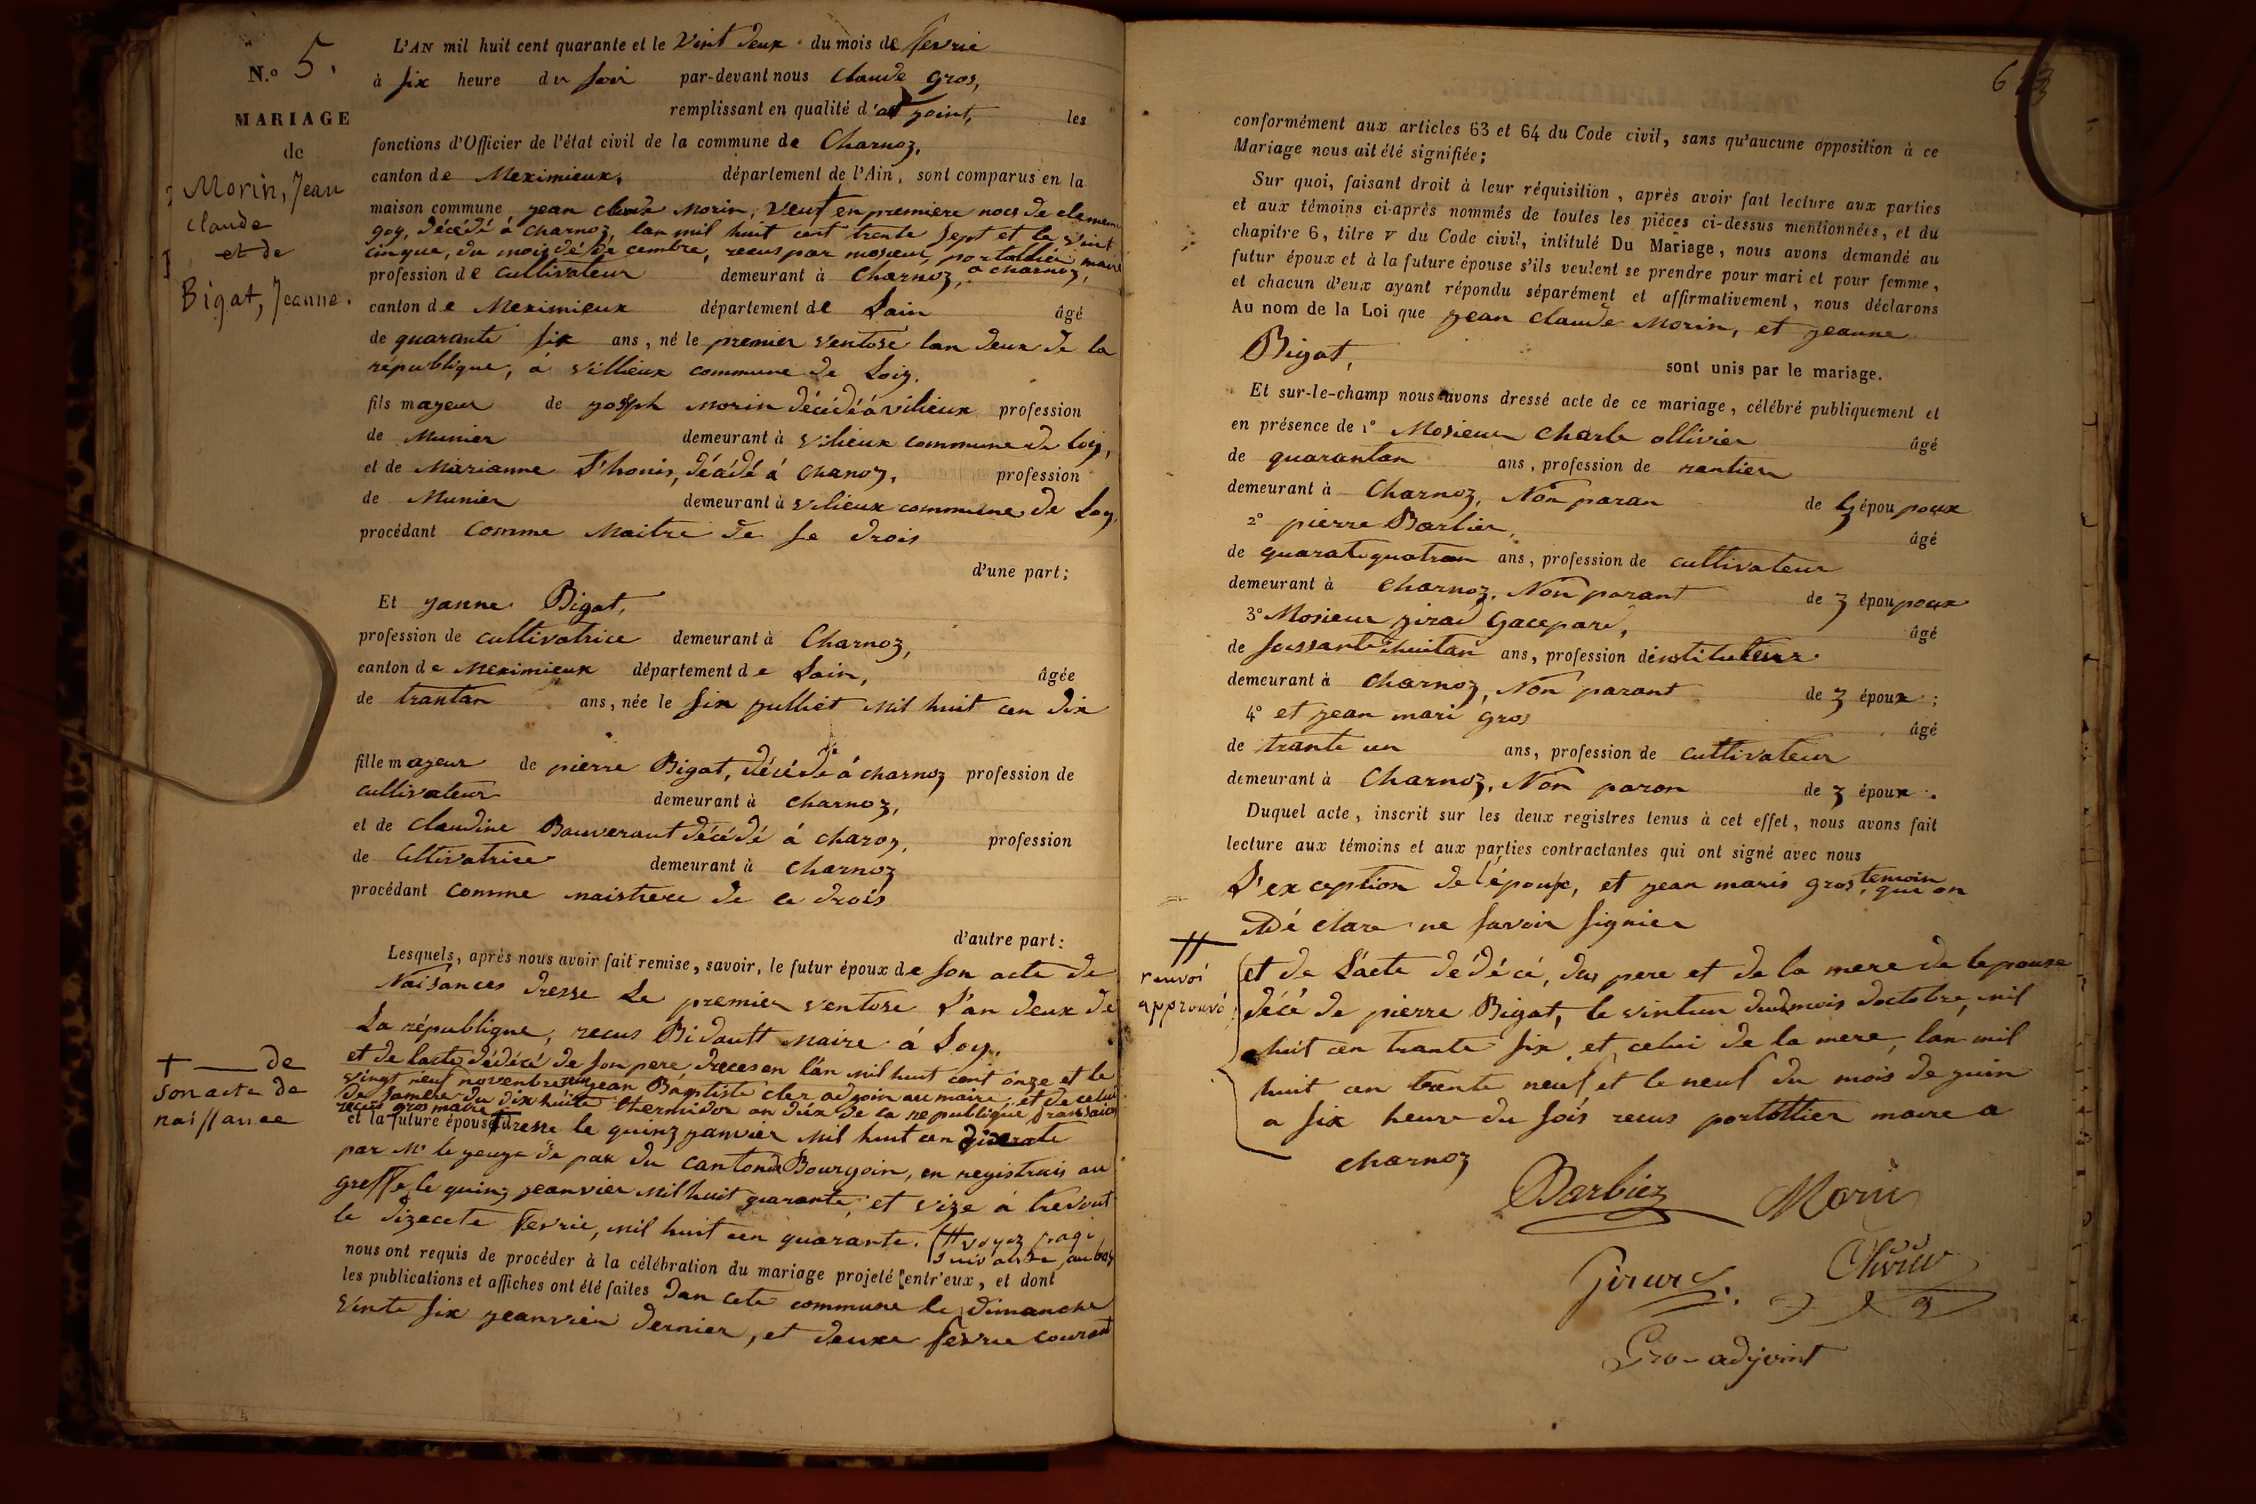 N.o 5.
MARIAGE
de
Morin, Jean
claude
et de
Bigat, Jeanne.
L'AN mil huit cent quarante et le Vint deux du mois de fevrie
à six heure du soir par-devant nous Claude gros,
remplissant en qualité d'adjoint, les
fonctions d'Officier de l'état civil de la commune de Charnoz,
canton de Meximieux, département de l'Ain, sont comparus en la
maison commune jean claude Morin, veuf en premiere noes de
goy, décédé à charnoz, lan mil huit cent trente sept et le vint
cinque, du mois dé décembre, recus par mosieur portallier maire
profession de cultivateur demeurant à Charnoz, a charnoz,
canton de Meximieux département de Lain âgé
de quarante six ans, né le premier ventose lan deux de la
république, á villieux commune de Loiy.
fils mageur de joseph Morin décédé á vilieux profession
de Munier demeurant à vilieux commune de Loy,
et de Marianne Thonin, décédé á chanoz, profession
de Munier demeurant à vilieux commune de Loy,
procédant comme Maitre de se drois
d'une part;
Et janne Bigat,
profession de cultivatrice demeurant à Charnoz,
canton de Meximieux département de Lain, âgée
de trantan ans, née le six julliet mil huit cen dix
fille mageur de pierre Bigat, décédé á charnoz profession de
cultivateur demeurant à charnoz,
et de claudine Bouverant décédé á charoz, profession
de Cltivatrice demeurant à charnoz
procédant comme maistrece de ce drois
d'autre part:
Lesquels, après nous avoir fait remise, savoir, le futur époux de son acte de
Naisances dresse Le premier ventose L'an deux de
La république, recus Bidault Maire á Loy.
et de lacte dédécé de son pere, dreces en l'an mil huit cent onze et le
vingt neuf novenbre jean Baptiste cler adjoin au maire, et de celui
de sa mere du dix huite thermidor an dix de la republique fransaise
recus gros maire
et la future épouse † dresse le quinz janvier mil huit cen quarante
par Mr le jeuge de pax du canton de Bourgoin, en registrais au
greffe le quinz jeanvier mil huit quarante, et vize á trevout
le dizecete fevrie, mil huit cen quarante. (# voyez page
suivante, au bas
nous ont requis de procéder à la célébration du mariage projeté entr'eux, et dont
les publications et affiches ont été faites dan cete commune le dimanche
vinte six jeanvier dernier, et deuxe fevrie courant
† de
son acte de
naissance
conformément aux articles 63 et 64 du Code civil, sans qu'aucune opposition à ce
Mariage nous ait été signifiée;
Sur quoi, faisant droit à leur réquisition, après avoir fait lecture aux parties
et aux témoins ci-après nommés de toutes les pièces ci-dessus mentionnées, et du
chapitre 6, titre v du Code civil, intitulé Du Mariage, nous avons demandé au
futur époux et à la future épouse s'ils veulent se prendre pour mari et pour femme,
et chacun d'eux ayant répondu séparément et affirmativement, nous déclarons
Au nom de la Loi que jean claude Morin, et jeanne
Bigat,
sont unis par le mariage.
Et sur-le-champ nous avons dressé acte de ce mariage, célébré publiquement et
en présence de 1° Mosieur charle ollivier âgé
de quarantan ans, profession de rantier
demeurant à Charnoz, Non paran de z époupoux
2° pierre Barbier, âgé
de quarate quatran ans, profession de cultivateur
demeurant à charnoz, Non parant de z époupoux
3° Mosieur girad gacepard, âgé
de soissante huitan ans, profession dinstituteur
demeurant à charnoz, Non parant de z époux;
4° et jean mari gros âgé
de trante un ans, profession de cultivateur
demeurant à Charnoz, Non paron de z époux.
Duquel acte, inscrit sur les deux registres tenus à cet effet, nous avons fait
lecture aux témoins et aux parties contractantes qui ont signé avec nous
L'exception de l'épouse, et jean maris gros temoin, qui on
Dé clare ne savoir signier
#
renvoi
approuvé
et de L'acte dédécé, das pere et de la mere de lepouse
décé de pierre Bigat, le vintun dudmois doctobre, mil
huit cen trante six et celui de la mere, lan mil
huit cen trente neuf et le neuf du mois de juin
a six heure du sois recus portallier maire a
charnoz
Barbiez Morin
Girard. Olivier
Gros adjoint